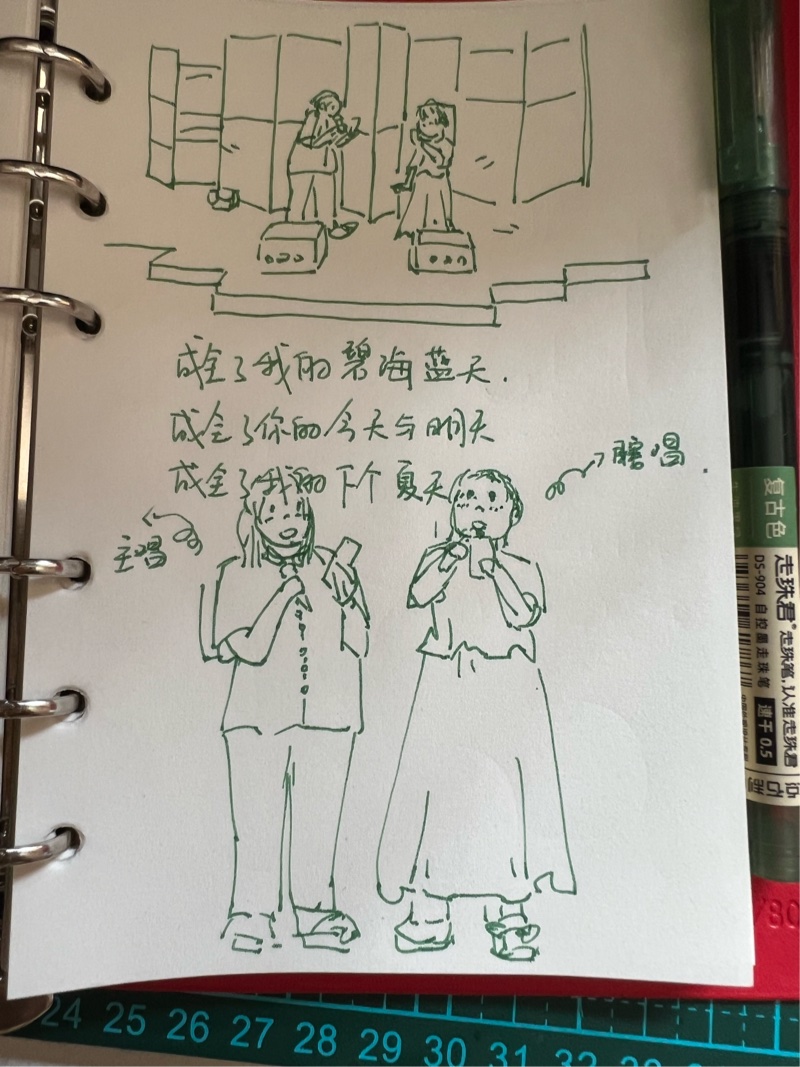 成全了我的碧海蓝天.
成全了你的今天与明天
成全了我的下个夏天
瞎唱.
主唱
复古色
走珠君® 走珠笔,认准走珠君
DS-904 自控墨走珠笔 速干 0.5
24 25 26 27 28 29 30 31 32
/80